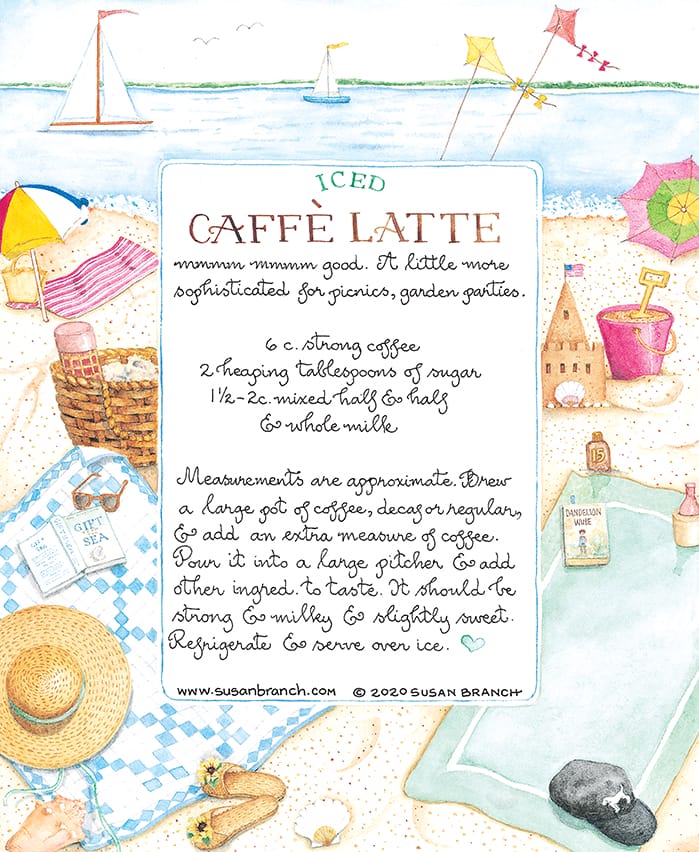 ICED
CAFFÈ LATTE
mmmm mmmm good. A little more
sophisticated for picnics, garden parties.
6 c. strong coffee
2 heaping tablespoons of sugar
1½-2c. mixed half & half
& whole milk
Measurements are approximate. Brew
a large pot of coffee, decaf or regular,
& add an extra measure of coffee.
Pour it into a large pitcher & add
other ingred. to taste. It should be
strong & milky & slightly sweet.
Refrigerate & serve over ice.
www.susanbranch.com © 2020 SUSAN BRANCH
15
DANDELION
WINE
GIFT
SEA